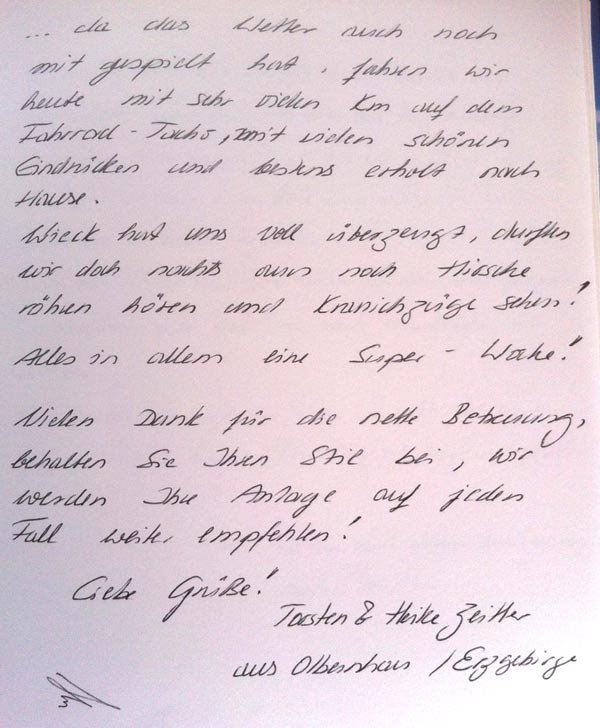 ... da das Wetter auch noch
mit gespielt hat, fahren wir
heute mit sehr vielen Km auf dem
Fahrrad-Tacho, mit vielen schönen
Eindrücken und bestens erholt nach
Hause.
Wieck hat uns voll überzeugt, durften
wir doch nachts nun noch Hirsche
röhren hören und Kranichzüge sehen!
Alles in allem eine Super-Woche!
Vielen Dank für die nette Betreuung,
behalten Sie Ihren Stil bei, wir
werden Ihre Anlage auf jeden
Fall weiter empfehlen!
Liebe Grüße!
Torsten & Heike
aus Olbernhau /Erzgebirge